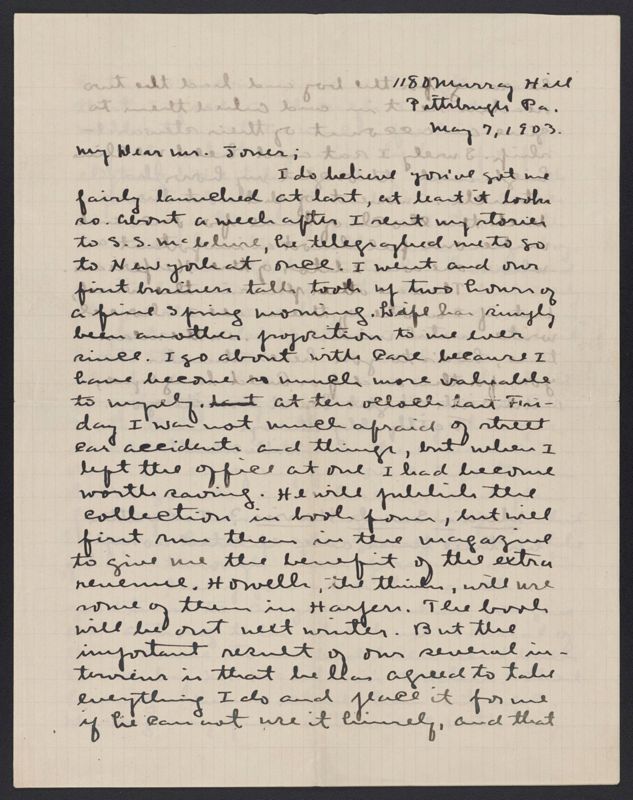 1180 Murray Hill
Pittsburgh Pa.
May 7, 1903.
My Dear Mr. Jones;
I do believe you've got me
fairly launched at last, at least it looks
so. About a week after I sent my stories
to S. S. McClure, he telegraphed me to go
to New York at once. I went and our
first business talk took up two hours of
a fine Spring morning. Life has simply
been another proposition to me ever
since. I go about with care because I
have become so much more valuable
to myself. at ten oclock last Fri-
day I was not much afraid of street
car accidents and things, but when I
left the office at one I had become
worth saving. He will publish the
collection in book form, but will
first run them in the magazine
to give me the benefit of the extra
revenue. Howells, he thinks, will use
some of them in Harpers. The book
will be out next winter. But the
important result of our several in-
terviews is that he has agreed to take
everything I do and place it for me
if he can not use it himself, and that